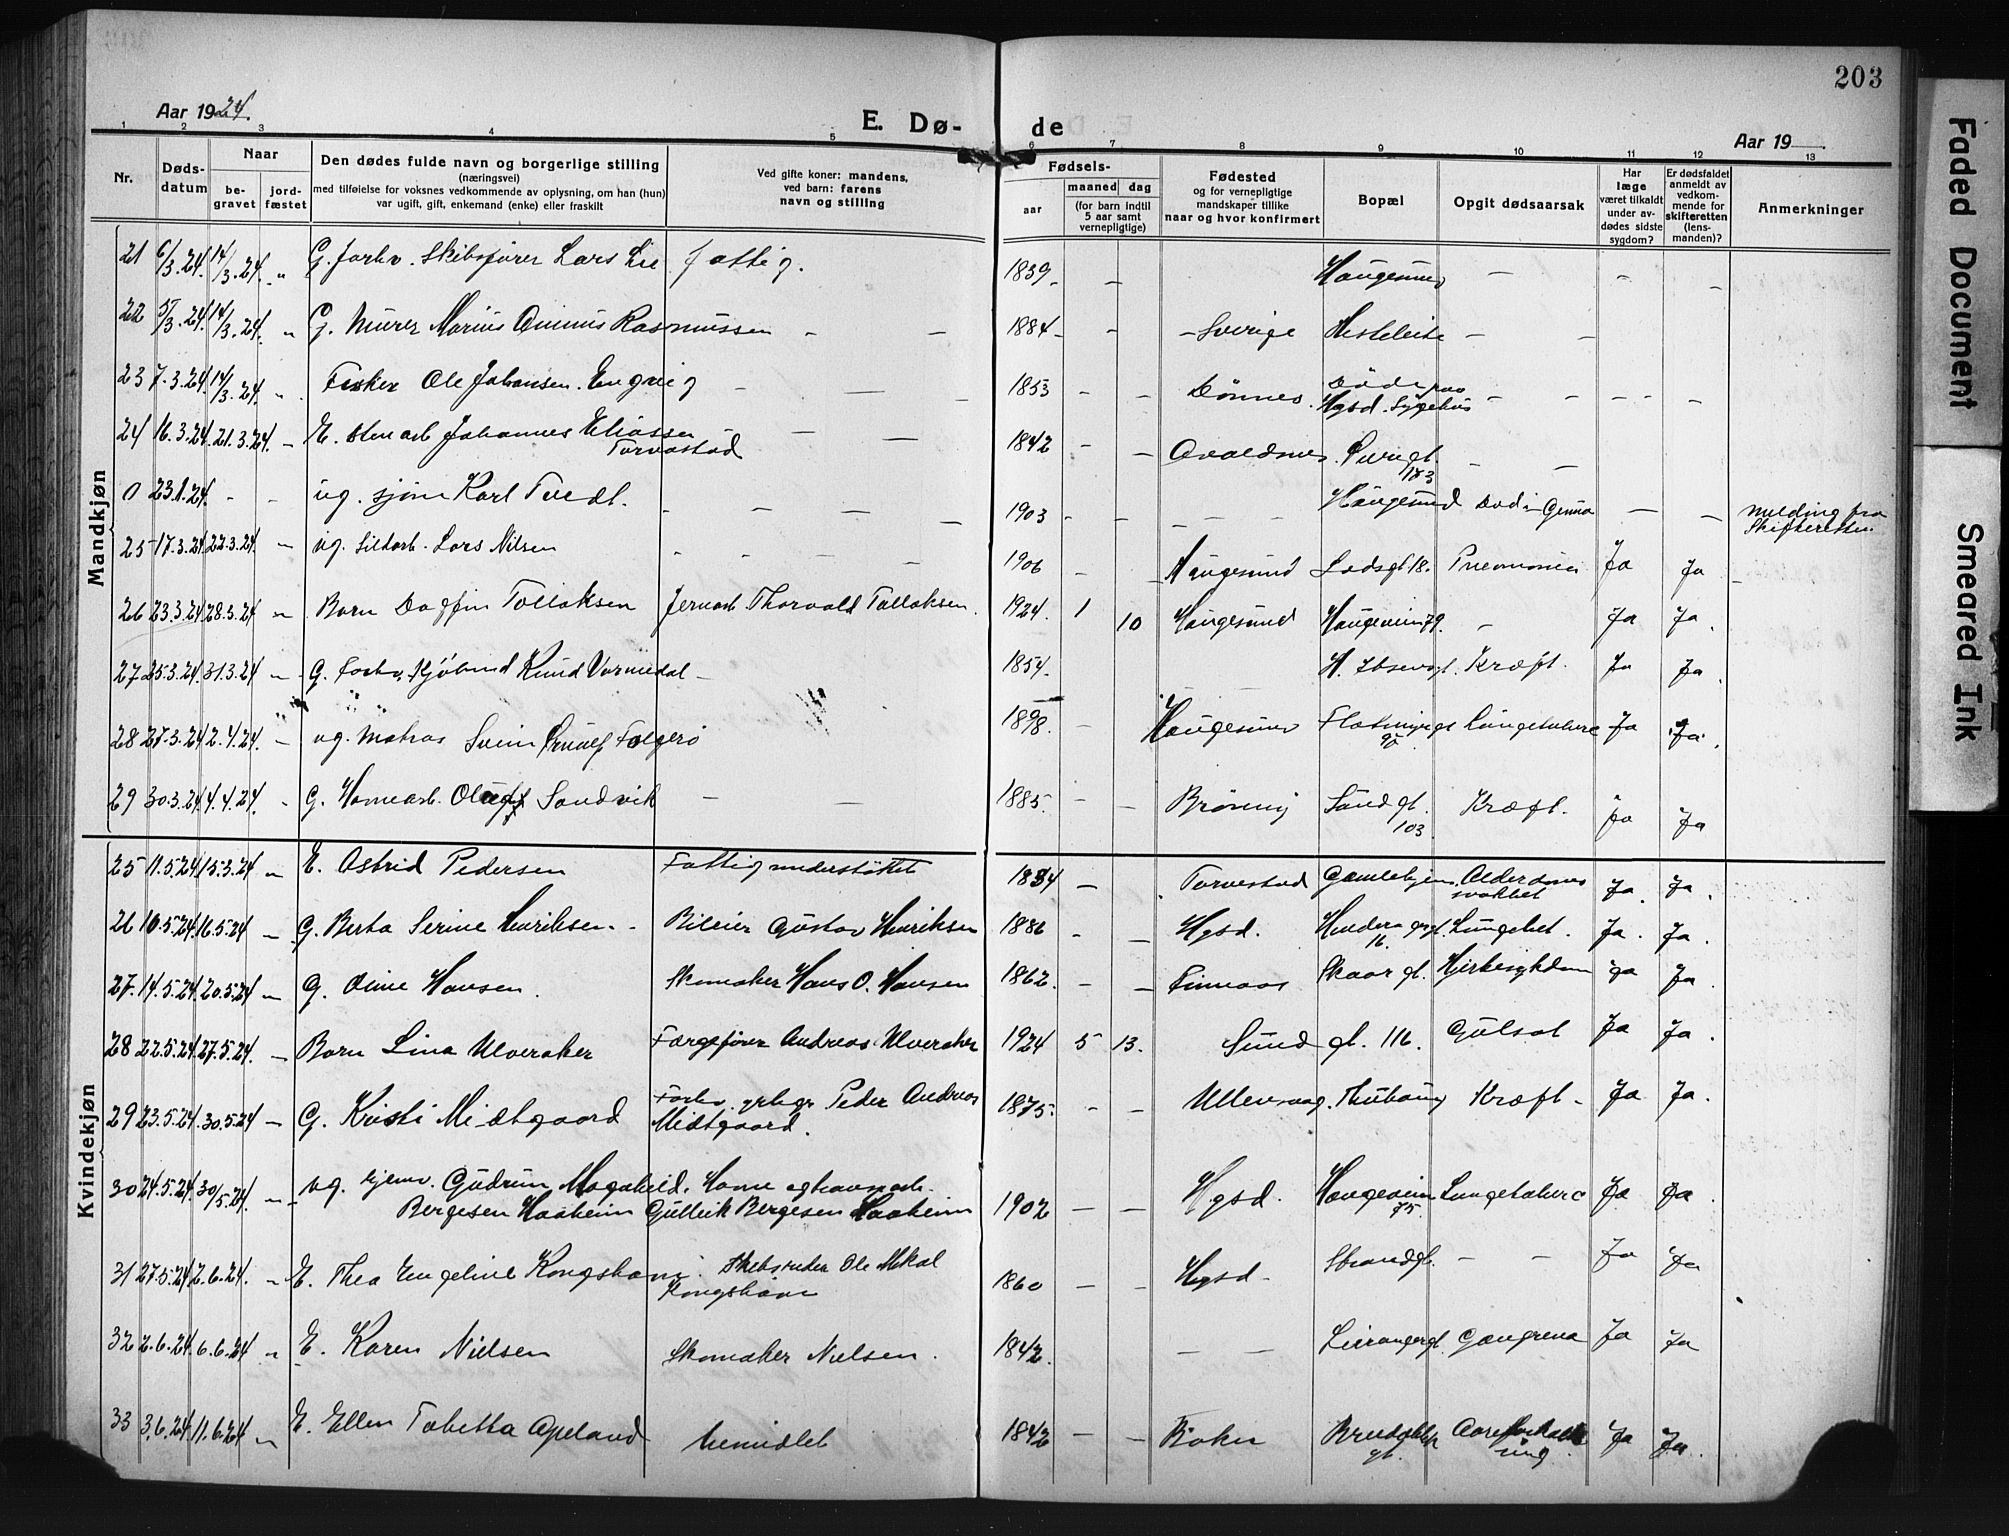 203
Aar 1924.
E. Dø- de
Aar 19
1 2 3 4 5 6 7 8 9 10 11 12 13
Nr.
Døds-
datum
Naar
be-
gravet
jord-
fæstet
Den dødes fulde navn og borgerlige stilling
(næringsvei)
med tilføielse for voksnes vedkommende av oplysning, om han (hun)
var ugift, gift, enkemand (enke) eller fraskilt
Ved gifte koner: mandens,
ved barn: farens
navn og stilling
Fødsels-
aar
maaned
dag
(for barn indtil
5 aar samt
vernepligtige)
Fødested
og for vernepligtige
mandskaper tillike
naar og hvor konfirmert
Bopæl
Opgit dødsaarsak
Har
læge
været tilkaldt
under av-
dødes sidste
sygdom?
Er dødsfaldet
anmeldt av
vedkom-
mende for
skifteretten
(lens-
manden)?
Anmerkninger
Mandkjøn
21 6/3.24. 14/3.24. " G. forhv. Skibsfører Lars Lie fattig. 1839 - - Haugesund - - -
22 5/3.24. 14/3.24. " G. Murer Marius Rasmussen - - 1884 - - Sverige - -
23 7.3.24. 14/3.24. " Fisker Ole Johansen Engvig - - - 1853 - - Dønnes Død paa
Hgsd. Sygehus - - - - -
24 16.3.24. 21.3.24. " E. Johannes Eliassen
Torvastad - - 1842 - - Avaldsnes
183 - -
0 23.1.24. - - ug. sjøm Karl Tvedt. - - - - 1903 - - - - - Haugesund Død i Genua - - Melding fra
Skifteretten.
25 17.3.24. 22.3.24. " ug. Sildarb. Lars Nilsen - - - 1906 - - Haugesund Lodsgt. 18. Pneumonia Ja Ja -
26 23.3.24 28.3.24 " Barn Dagfin Tollaksen Jernarb. Thorvald Tollaksen. 1924. 1 10 Haugesund Haugeveien 79. - Ja Ja.
27 25.3.24. 31.3.24 " G. forhv. Kjøbmd Knud Vormedal - 1854. H. Ibsensgt. Kræft. Ja Ja.
28 27.3.24 2.4.24. - ug. Matros Svein Folgerø 1898. - Haugesund Flotmyrgt
Lungetuberc Ja Ja.
29 30.3.24 4.4.24. " G. Havnearb. Oluf Sandvik - - 1885. - - Sund gt.
103. Kræft. Ja Ja
Kvindekjøn
25 11.5.24 15.3.24 " E. Astrid Pedersen Fattigunderstøttet 1834 - Torvestad Gamlehjem Alderdoms
svakhet Ja. Ja.
26 10.5.24. 16.5.24 " G. Berta Serine Henriksen. Bileier Gustav Henriksen 1886 - - Hgsd.
16. Lungebet. Ja. Ja.
27. 14.5.24 20.5.24 " G. Oline Hansen. Skomaker Hans O. Hansen 1862. - - Finnaas Skaar gt. Hjertesykdom Ja Ja.
28 22.5.24. 27.5.24. - Barn Lina Ulveraker Færgefører Andreas Ulveraker 1924 5 13. Sund gt. 116. Gulsot Ja Ja.
29 23.5.24. 30.5.24 - G. Kristi Midtgaard Forhv. Peder Andreas
Midtgaard. 1875. - - Ullensvang. Kræft - Ja Ja.
30 24.5.24. 30/5.24. " ug. hjemv. Gudrun Magnhild. Havne og havnarb.
Bergesen Haaheim Gulleik Bergesen Haaheim 1902 - - Hgsd. Haugeveien
75. Lungetuberc Ja Ja.
31 27.5.24 2.6.24. " E. Thea Engeline Kongshavn. Skibsreder Ole Mikal
Kongshavn 1860 - - Hgsd - Strandgt. - - Ja Ja
32 2.6.24. 6.6.24 " E. Karen Nielsen Skomaker Nielsen. 1842. - - Gangrena Ja Ja
33 3.6.24 11.6.24 " E. Ellen Tabetta Apeland bemidlet 1842 - - Boken
gt. Aareforkalk
ning. Ja Ja.
Faded Document
Smeared Ink